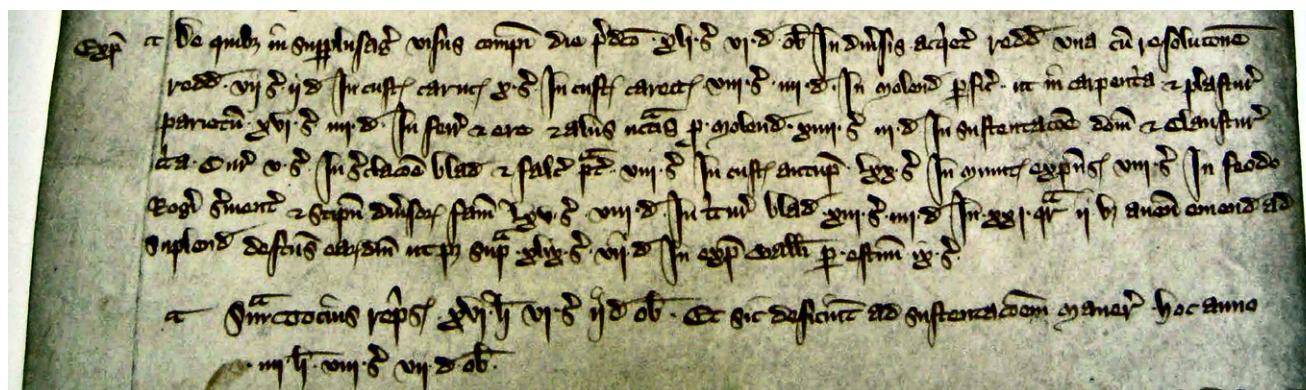 Exp̄ De quib; in supplusaḡ visus compī die p̄dc̄o xlj s̄ vj d ob̄ In div̄sis acq̄ret̄ redd̄ una cū resoluc̄one
redd̄ vij s̄ ij d In cust̄ caruc̄ x s̄ In cust̄ carect̄ viij s̄ iiij d In molend̄ p̄fic̄ ut in carpent̄ia & plastur̄
parietū xvj s̄ iiij d In ferr̄ & ere & aliis p̄ molend̄ xiiij s̄ iij d In sustentac̄oe dom̄ & Claustur̄
v s̄ In s̄clac̄oe blad̄ & falc̄ p̄t̄ viij s̄ In cust̄ autūp̄ lxx s̄ In minut̄ exp̄ns̄ viij s̄ In feodo
Roḡi s̄vient̄ & Stip̄n div̄sor̄ fam̄ lxv s̄ viij d In t̄tur̄ blad̄ xiij s̄ iiij d In xxj qr̄ ij b; aven̄ emend̄ ad
suplend̄ defc̄us eardm̄ ut p; sup̄ xlix s̄ vij d In exp̄ Ball̄i p̄ estim̄ ix s̄
Sm̄a tocius rep̄s̄ xvj li vj s̄ ij d ob̄ Et sic deficiūt ad sustentac̄oem maner̄ hoc anno
iiij li viij s̄ vij d ob̄